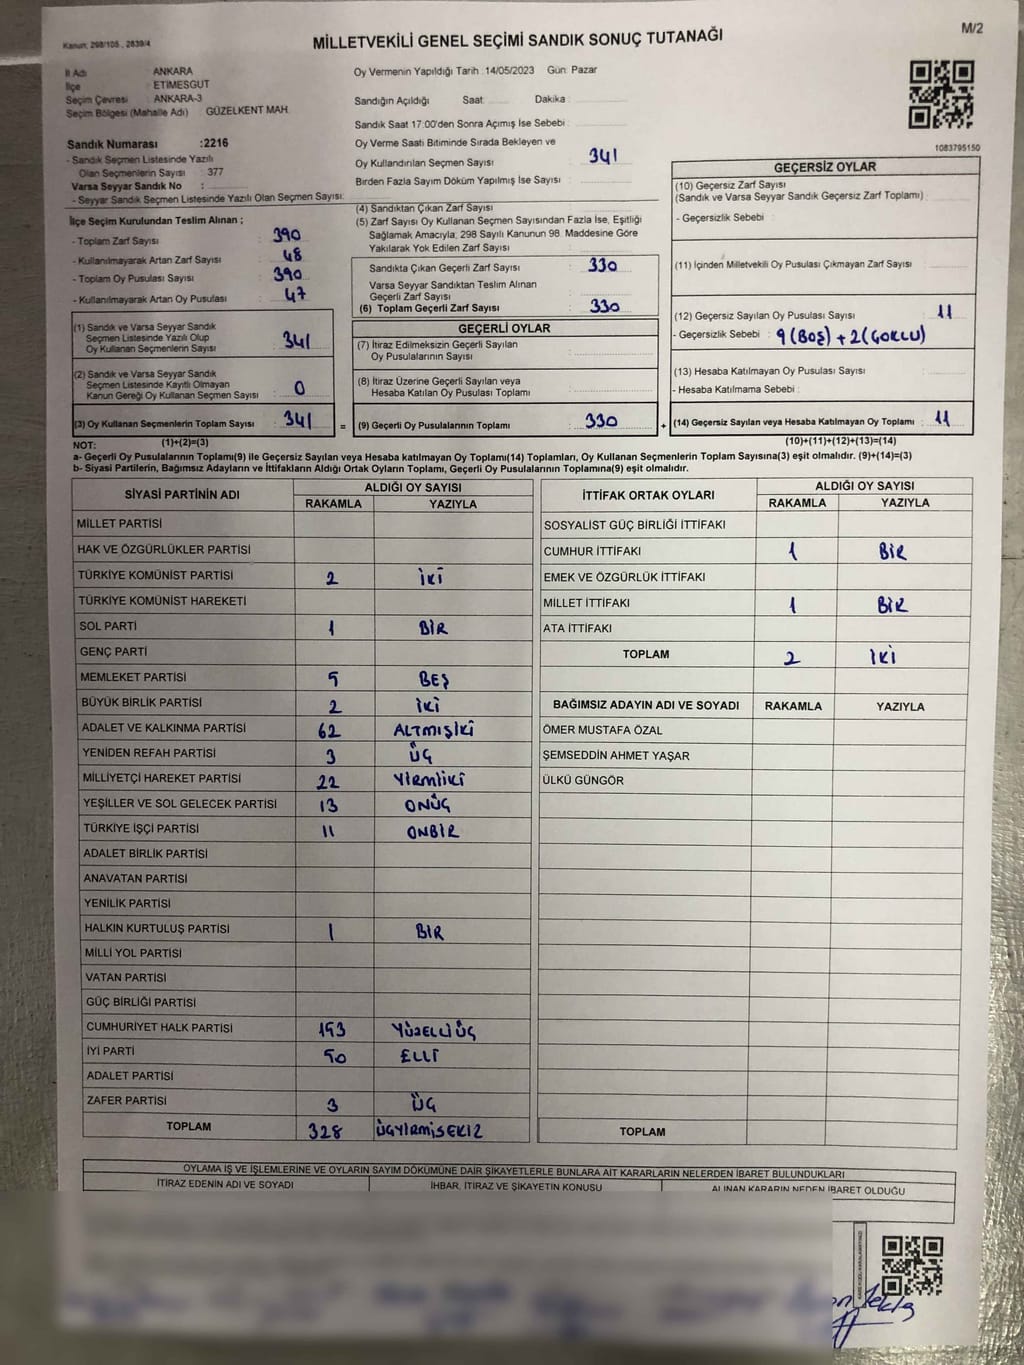 M/2
Kanun: 298/105 , 2839/4
MİLLETVEKİLİ GENEL SEÇİMİ SANDIK SONUÇ TUTANAĞI
İl Adı ANKARA
İlçe ETİMESGUT
Seçim Çevresi ANKARA-3
Seçim Bölgesi (Mahalle Adı) GÜZELKENT MAH.
Sandık Numarası :2216
- Sandık Seçmen Listesinde Yazılı
Olan Seçmenlerin Sayısı : 377
Varsa Seyyar Sandık No :
- Seyyar Sandık Seçmen Listesinde Yazılı Olan Seçmen Sayısı:
Oy Vermenin Yapıldığı Tarih :14/05/2023 Gün: Pazar
Sandığın Açıldığı Saat: Dakika :
Sandık Saat 17:00'den Sonra Açımış İse Sebebi :
Oy Verme Saati Bitiminde Sırada Bekleyen ve
Oy Kullandırılan Seçmen Sayısı : 341
Birden Fazla Sayım Döküm Yapılmış İse Sayısı :
1083795150
İlçe Seçim Kurulundan Teslim Alınan ;
- Toplam Zarf Sayısı : 390
- Kullanılmayarak Artan Zarf Sayısı : 48
- Toplam Oy Pusulası Sayısı : 390
- Kullanılmayarak Artan Oy Pusulası : 47
(1) Sandık ve Varsa Seyyar Sandık
Seçmen Listesinde Yazılı Olup
Oy Kullanan Seçmenlerin Sayısı : 341
(2) Sandık ve Varsa Seyyar Sandık
Seçmen Listesinde Kayıtlı Olmayan
Kanun Gereği Oy Kullanan Seçmen Sayısı : 0
(3) Oy Kullanan Seçmenlerin Toplam Sayısı : 341 =
(1)+(2)=(3)
(4) Sandıktan Çıkan Zarf Sayısı
(5) Zarf Sayısı Oy Kullanan Seçmen Sayısından Fazla İse, Eşitliği
Sağlamak Amacıyla; 298 Sayılı Kanunun 98. Maddesine Göre
Yakılarak Yok Edilen Zarf Sayısı :
Sandıkta Çıkan Geçerli Zarf Sayısı : 330
Varsa Seyyar Sandıktan Teslim Alınan
Geçerli Zarf Sayısı :
(6) Toplam Geçerli Zarf Sayısı : 330
GEÇERLİ OYLAR
(7) İtiraz Edilmeksizin Geçerli Sayılan
Oy Pusulalarının Sayısı :
(8) İtiraz Üzerine Geçerli Sayılan veya
Hesaba Katılan Oy Pusulası Toplamı :
(9) Geçerli Oy Pusulalarının Toplamı : 330 +
GEÇERSİZ OYLAR
(10) Geçersiz Zarf Sayısı
(Sandık ve Varsa Seyyar Sandık Geçersiz Zarf Toplamı) :
- Geçersizlik Sebebi :
(11) İçinden Milletvekili Oy Pusulası Çıkmayan Zarf Sayısı :
(12) Geçersiz Sayılan Oy Pusulası Sayısı : 11
- Geçersizlik Sebebi : 9 (BOŞ) + 2 (ÇOKLU)
(13) Hesaba Katılmayan Oy Pusulası Sayısı :
- Hesaba Katılmama Sebebi :
(14) Geçersiz Sayılan veya Hesaba Katılmayan Oy Toplamı : 11
(10)+(11)+(12)+(13)=(14)
NOT:
a- Geçerli Oy Pusulalarının Toplamı(9) ile Geçersiz Sayılan veya Hesaba katılmayan Oy Toplamı(14) Toplamları, Oy Kullanan Seçmenlerin Toplam Sayısına(3) eşit olmalıdır. (9)+(14)=(3)
b- Siyasi Partilerin, Bağımsız Adayların ve İttifakların Aldığı Ortak Oyların Toplamı, Geçerli Oy Pusulalarının Toplamına(9) eşit olmalıdır.
SİYASİ PARTİNİN ADI ALDIĞI OY SAYISI
RAKAMLA YAZIYLA
MİLLET PARTİSİ
HAK VE ÖZGÜRLÜKLER PARTİSİ
TÜRKİYE KOMÜNİST PARTİSİ 2 İKİ
TÜRKİYE KOMÜNİST HAREKETİ
SOL PARTİ 1 BİR
GENÇ PARTİ
MEMLEKET PARTİSİ 5 BEŞ
BÜYÜK BİRLİK PARTİSİ 2 İKİ
ADALET VE KALKINMA PARTİSİ 62 ALTMIŞİKİ
YENİDEN REFAH PARTİSİ 3 ÜÇ
MİLLİYETÇİ HAREKET PARTİSİ 22 YİRMİİKİ
YEŞİLLER VE SOL GELECEK PARTİSİ 13 ONÜÇ
TÜRKİYE İŞÇİ PARTİSİ 11 ONBİR
ADALET BİRLİK PARTİSİ
ANAVATAN PARTİSİ
YENİLİK PARTİSİ
HALKIN KURTULUŞ PARTİSİ 1 BİR
MİLLİ YOL PARTİSİ
VATAN PARTİSİ
GÜÇ BİRLİĞİ PARTİSİ
CUMHURİYET HALK PARTİSİ 153 YÜZELLİÜÇ
İYİ PARTİ 50 ELLİ
ADALET PARTİSİ
ZAFER PARTİSİ 3 ÜÇ
TOPLAM 328 ÜÇYİRMİSEKİZ
İTTİFAK ORTAK OYLARI ALDIĞI OY SAYISI
RAKAMLA YAZIYLA
SOSYALİST GÜÇ BİRLİĞİ İTTİFAKI
CUMHUR İTTİFAKI 1 BİR
EMEK VE ÖZGÜRLÜK İTTİFAKI
MİLLET İTTİFAKI 1 BİR
ATA İTTİFAKI
TOPLAM 2 İKİ
BAĞIMSIZ ADAYIN ADI VE SOYADI RAKAMLA YAZIYLA
ÖMER MUSTAFA ÖZAL
ŞEMSEDDİN AHMET YAŞAR
ÜLKÜ GÜNGÖR
TOPLAM
OYLAMA İŞ VE İŞLEMLERİNE VE OYLARIN SAYIM DÖKÜMÜNE DAİR ŞİKAYETLERLE BUNLARA AİT KARARLARIN NELERDEN İBARET BULUNDUKLARI
İTİRAZ EDENİN ADI VE SOYADI İHBAR, İTİRAZ VE ŞİKAYETİN KONUSU ALINAN KARARIN NEDEN İBARET OLDUĞU